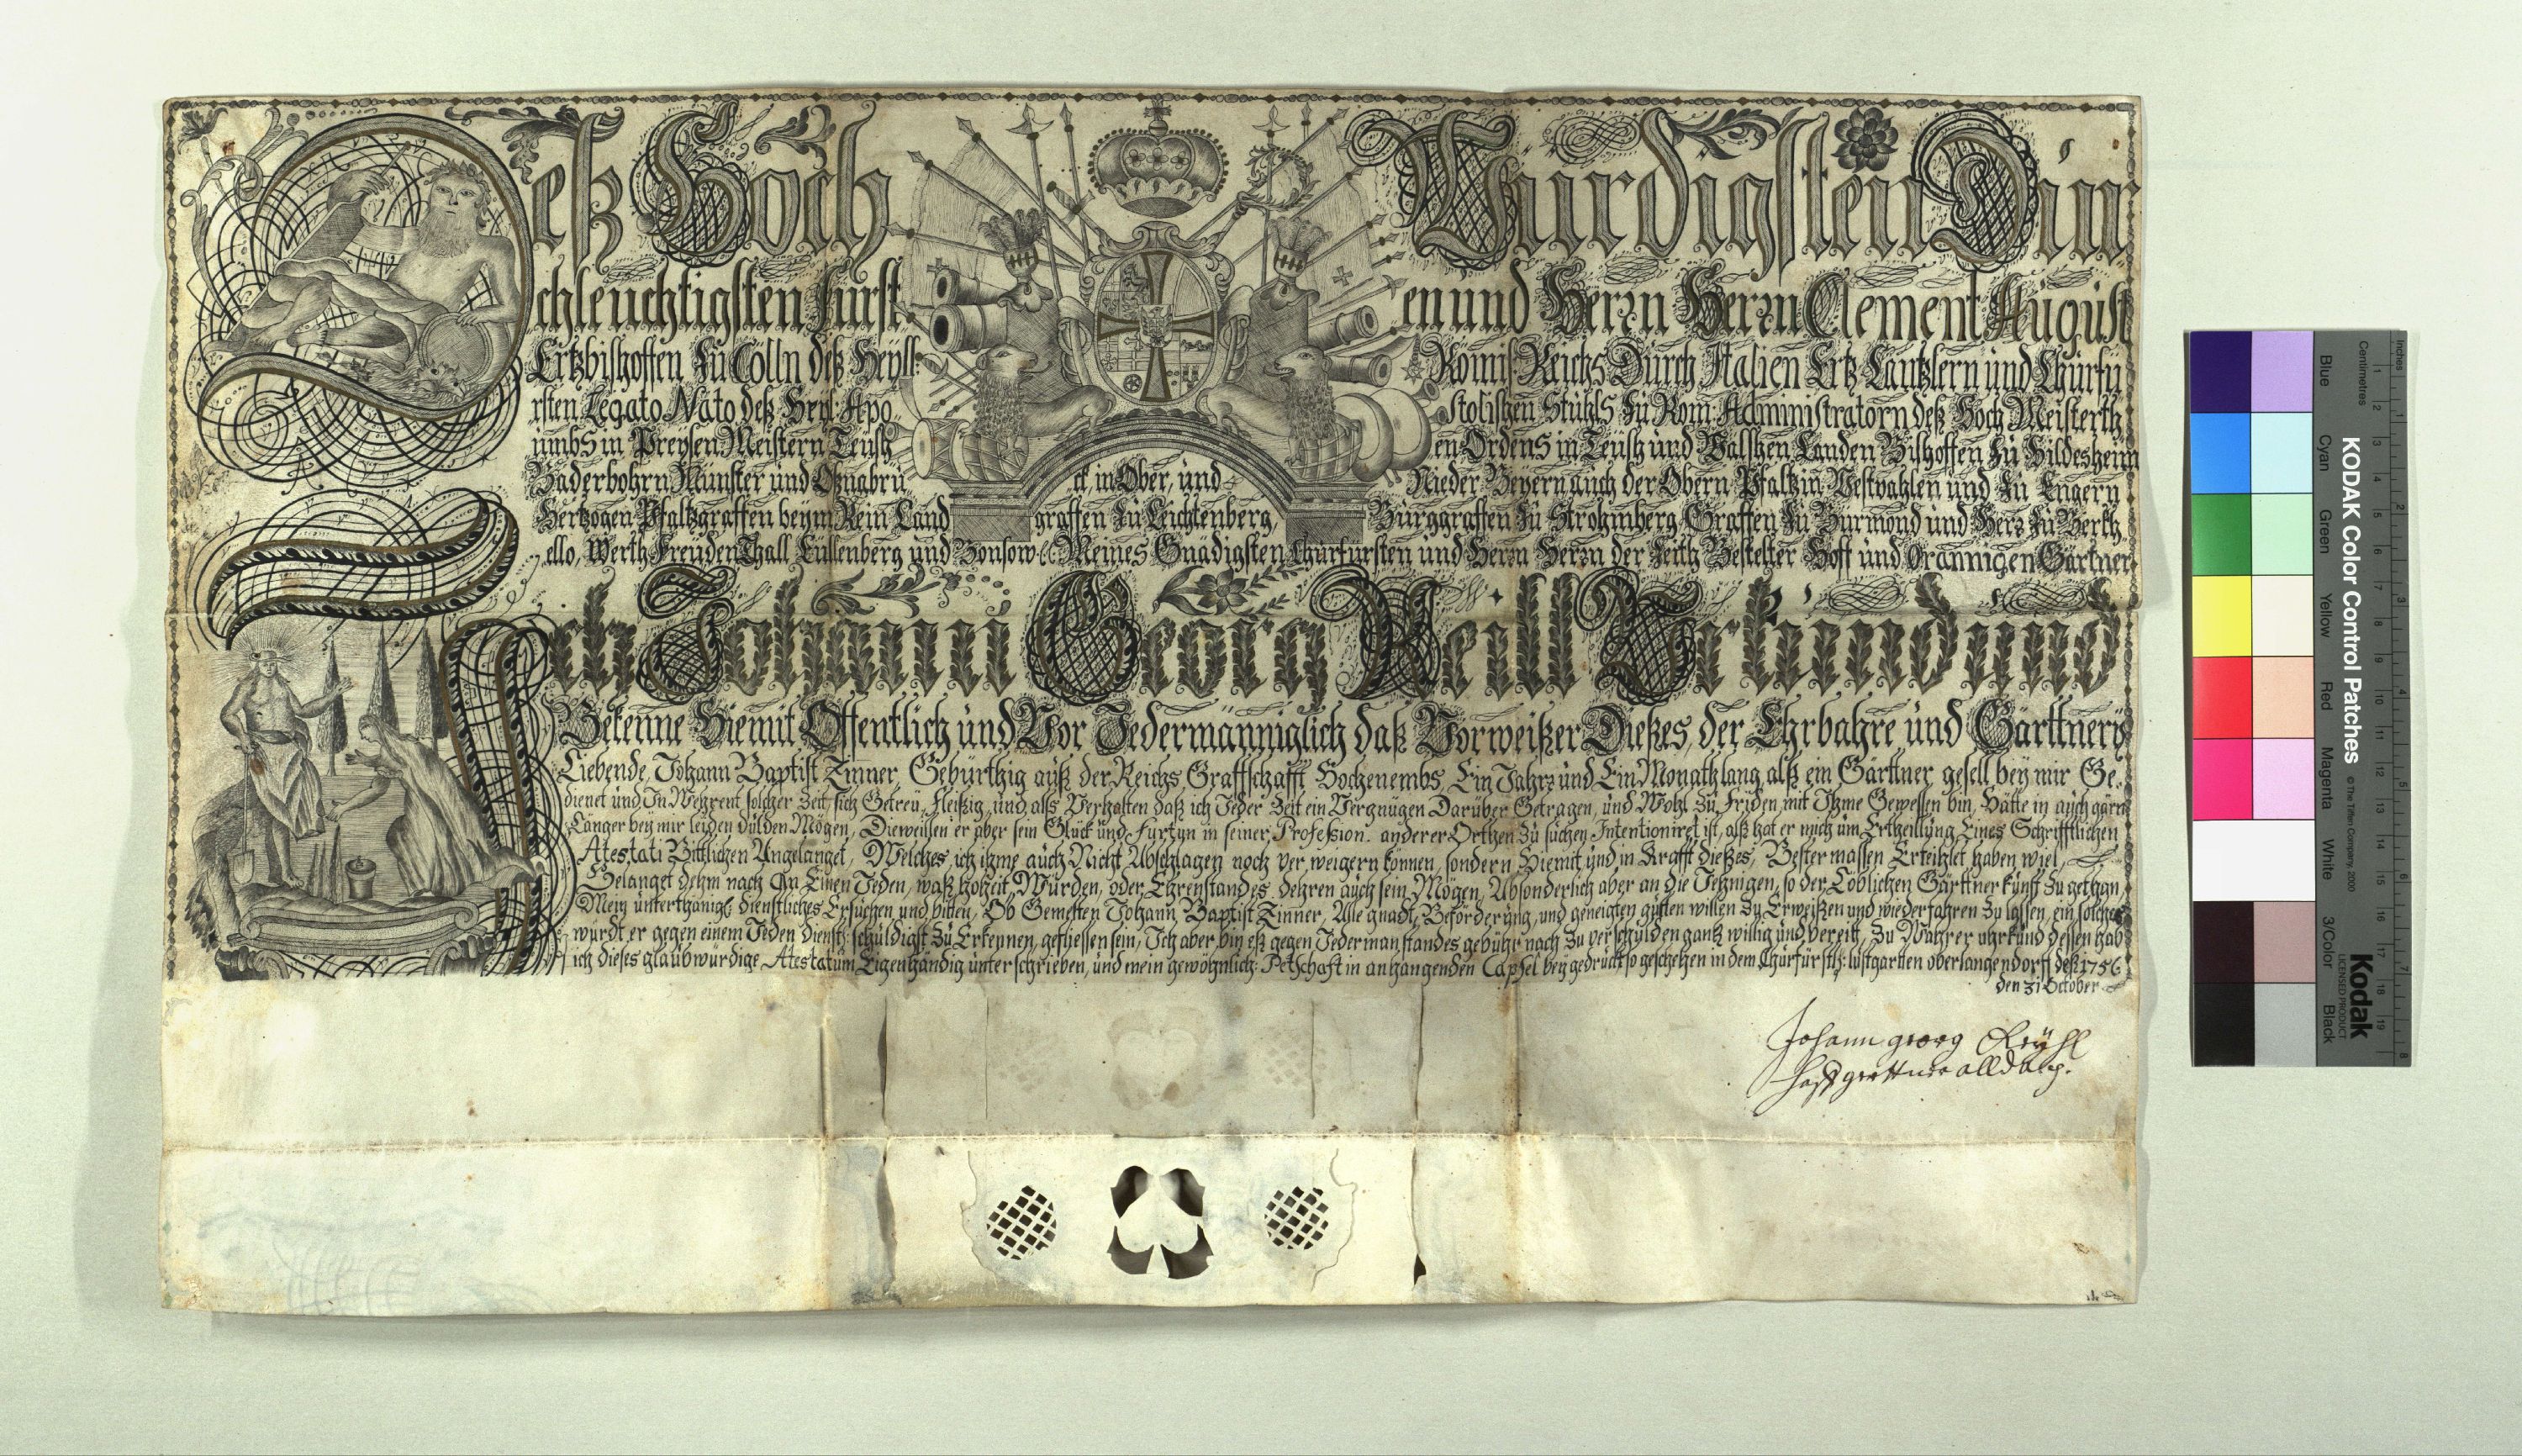 Deß Hoch Würdigsten Dur
chleuchtigsten Fürst en und Herrn Herrn Clement August
Ertzbishoffen Zu Cölln deß Heyll: Römis: Reichs Durch Italien Ertz Cantzlern und Churfü
rsten Legato Nato deß Heyl: Apo stolishen Stühls Zu Rom: Administratorn deß Hoch Meisterth
umbs in Preysen Meistern Teüsh en Ordens in Teüsh und Wälshen Landen Bishoffen Zu Hildesheim
Paderbohrn Münster und Oßnabrü ck, in Ober, und Nieder Beyern auch der Obern Pfaltz in Westvahlen und Zu Engern
Hertzogen Pfaltzgraffen beym Rein Land graffen Zu Leichtenberg, Burggraffen Zu Strohmberg, Graffen Zu Purmond und Herr Zu Berkh
ello, Werth Freüden Thall Lüllenberg und Bonsow &: Meines Gnädigsten Churfürsten und Herrn Herrn der Zeith Bestelter Hoff und Orannigen Gärtner
Ich Johann Georg Reill Urkund und
Bekenne Hiemit Offentlich und Vor Jedermänniglich daß Vorweißer Dießes, der Ehrbahre und Gärttnery
Liebende, Johann Baptist Zinner, Gebürthig auß der Reichs Graffschafft Hochenembs, Ein Jahr und Ein Monath lang, alß ein Gärttner gesell bey mir Ge.
dienet und In Wehrent solcher Zeit, sich Getreü, Fleißig, und alß Verhalten daß ich Jeder Zeit ein Vergnügen Darüber Getragen, und Wohl Zu Friden, mit Ihme Gewessen bin, Hätte in auch gärn
Länger bey mir leiden dulden Mögen, Dieweillen er aber sein Glück und Furtun in seiner Profession. anderer Orthen Zu suchen Intentioniret ist, alß hat er mich um Ertheillung Eines Schrifftlichen
Atestati Bittlichen Angelanget, Welches ich ihme auch Nicht Abschlagen noch ver weigern können, sondern Hiemit und in Krafft dießes, Bester massen Erteihlet haben wiel,
Gelanget dehm nach An Einen Jeden, waß hoheit, Würden, oder Ehrenstandes, dehren auch sein Mögen, Absonderlich aber an die Jehnigen, so der Löblichen Gärttner künst Zu gethan
Mein unterthänig: dienstliches Ersüchen und bitten, Ob Gemelten Johann Baptist Zinner, Alle gnadt, Beförderung, und geneigten gütten willen Zu Erweißen und wiederfahren Zu lassen, ein solches
würdt er gegen einem Jeden dienst: schüldigst Zu Erkennen, gefliessen sein, Ich aber bin eß gegen Jederman standes gebühr nach Zu verschülden gantz willig und bereitt, Zu Wahrer uhrkund dessen hab
ich dieses glaubwürdige Atestatum Eigenhändig unterschrieben, und mein gewöhnlich: Petschaft in anhangenden Capsel beygedruckt so geschehen in dem Churfürstl: lustgartten oberlangendorff deß 1756
den 31 October
Johann georg Reyhl
hoffgerttner alldas.
KODAK Color Control Patches © The Tiffen Company, 2000
Kodak
LICENSED PRODUCT
Blue Cyan Green Yellow Red Magenta White 3/Color Black
Centimetres Inches
1 2 3 4 5 6 7 8 9 10 11 12 13 14 15 16 17 18 19
1 2 3 4 5 6 7 8